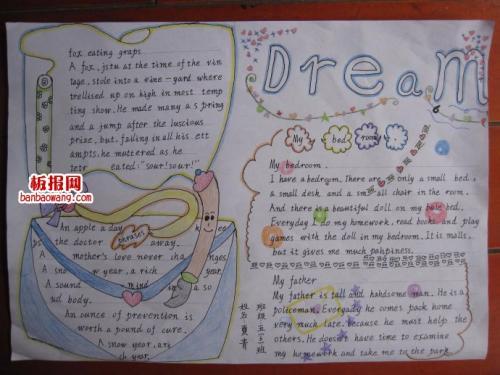 fox eating graps
A fox, jstu at the time of the vin
tage, stole into a vine-yard where
trellised up on high in most temp
ting show. He made many a s pring
and a jump after the luscious
prize, but, failing in all his ett
ampts, he muttered as he
retr eated: "sour! sour!"
板报网
banbaowang.com
An apple a day
the doctor away.
phrases
A mother's love never cha nges.
A snow year, a rich year.
A sound mind in a so
ud body.
An ounce of prevention is
worth a pound of cure.
A snow year, are
ch year.
Dream
My bed room
My bedroom.
I have a bedroom. There are only a small bed,
a small desk and a small chair in the room.
And there is a beautiful doll on my bed.
Everyday I do my homework, read books and play
games with the doll in my bedroom. It is malls,
but it gives me much
My father
My father is tall and handsome man. He is a
policeman. Everyday he comes back home
very much late. because he must help the
others. He doesn't have time to examine
my homework and take me to the park.
班级 五 班
姓名